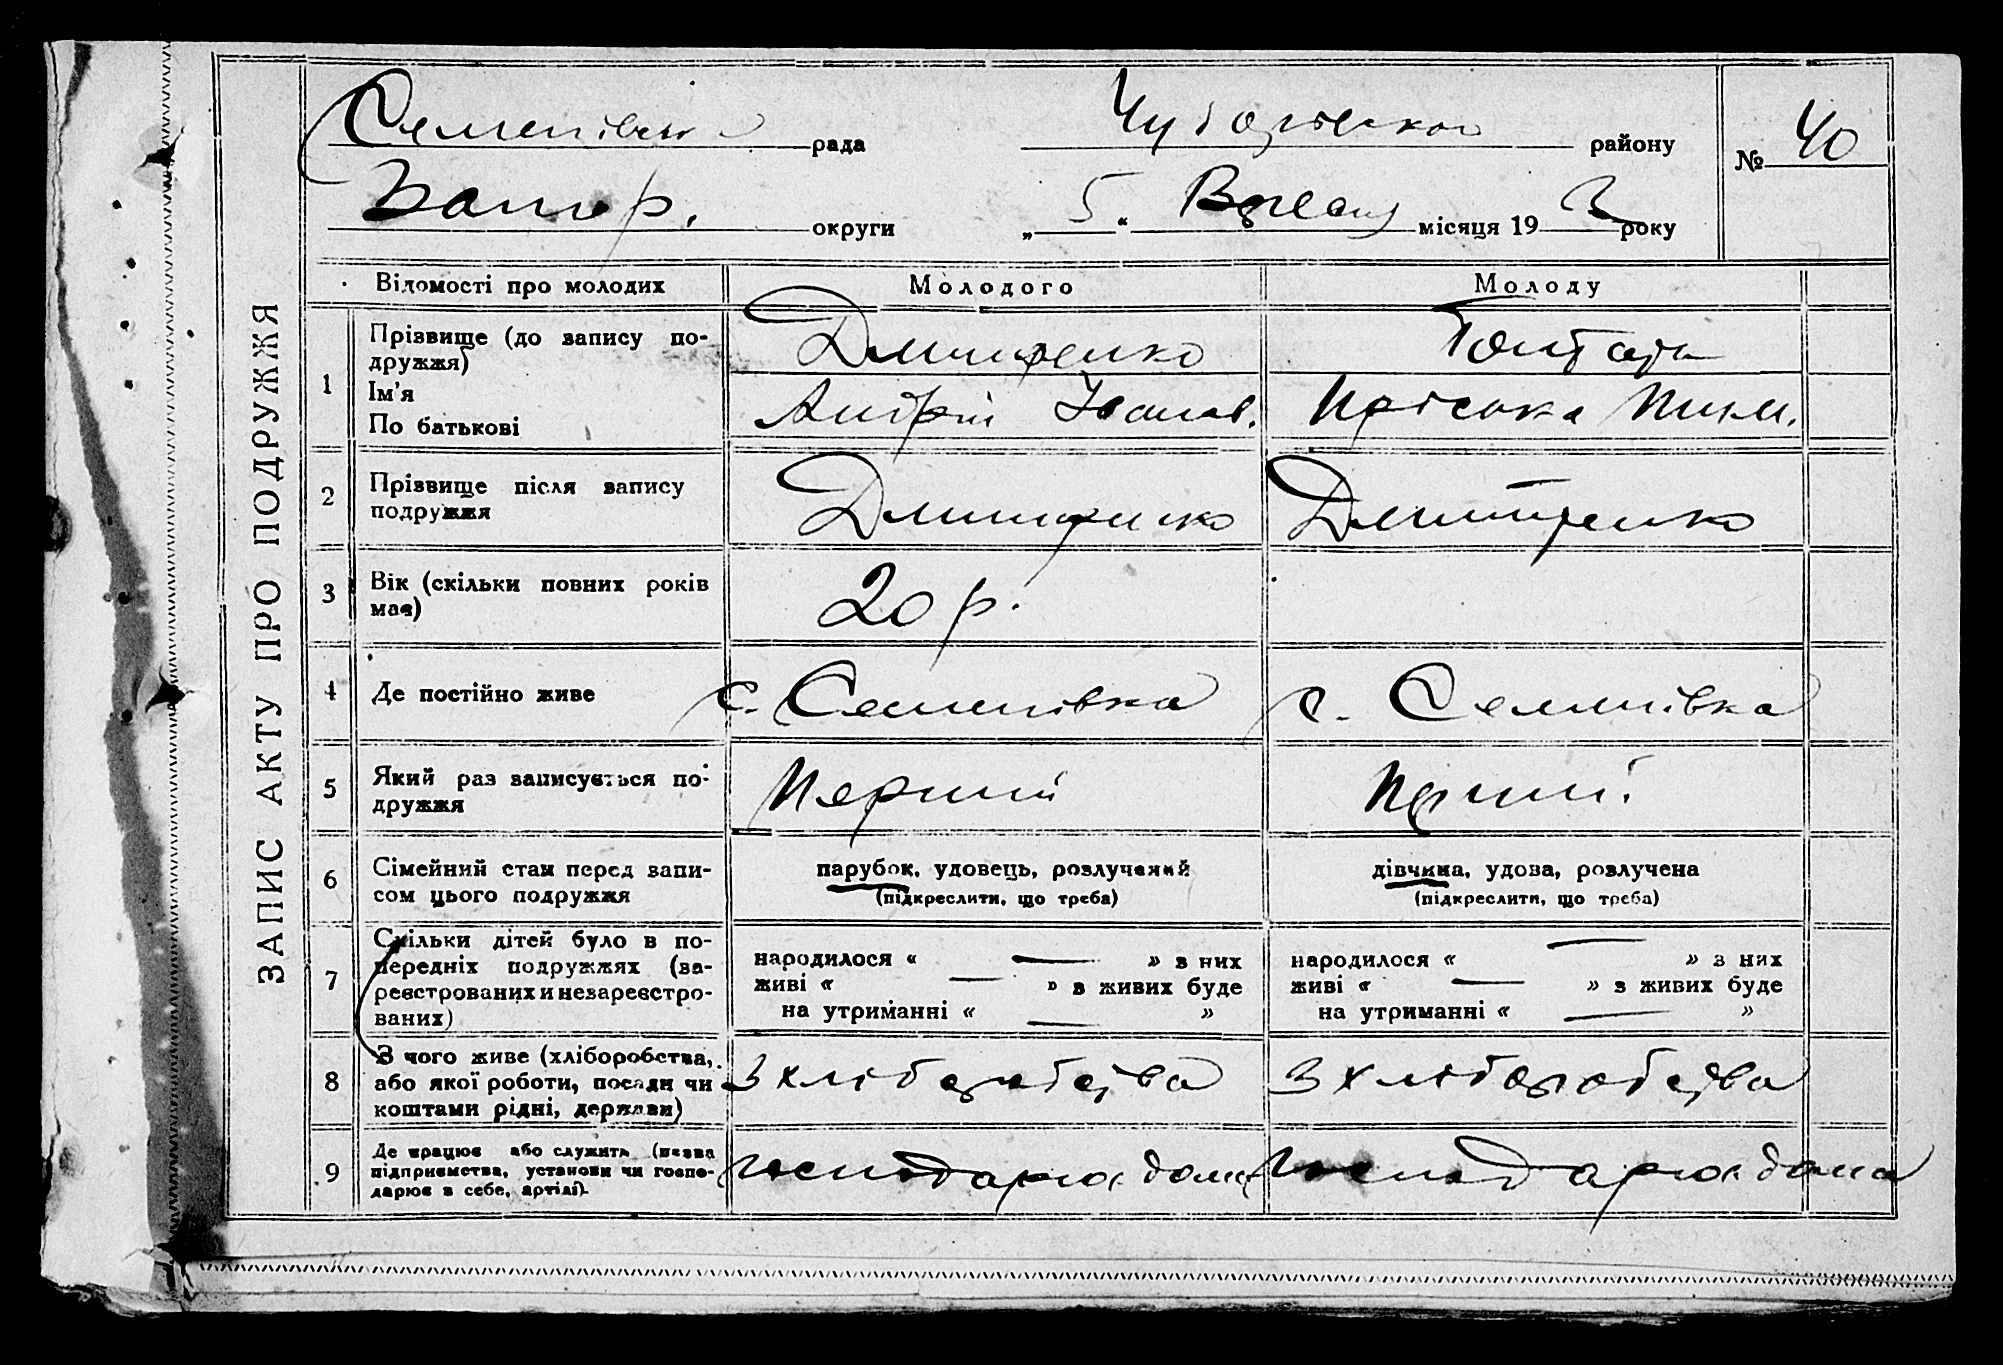 ЗАПИС АКТУ ПРО ПОДРУЖЖЯ
Семенівська рада Чубарівського району № 40
Запор. округи „ 5 “ місяця 19 3 року
Відомості про молодих Молодого Молоду
1 Прізвище (до запису по-
дружжя) Дмитренко Гонтарь
Ім'я
По батькові Андрій Іванов. Пріська Тим.
2 Прізвище після запису
подружжя Дмитренко Дмитренко
3 Вік (скільки повних років
має) 20 р.
4 Де постійно живе с. Семенівка с. Семенівка
5 Який раз записується по-
дружжя Перший Перший
6 Сімейний стан перед запи-
сом цього подружжя
парубок, удовець, розлучений
(підкреслити, що треба)
дівчина, удова, розлучена
(підкреслити, що треба)
7 Скільки дітей було в по-
передніх подружжях (за-
реєстрованих и незареєстро-
ваних)
народилося « — » з них
живі « — » з живих буде
на утриманні « — »
народилося « — » з них
живі « — » з живих буде
на утриманні « — »
8 З чого живе (хліборобства,
або якої роботи, посади чи
коштами рідні, держави)
З хліборобства З хліборобства
9 Де працює або служить (назва
підприємства, установи чи госпо-
дарює в себе, артілі).
господарює дома господарює дома